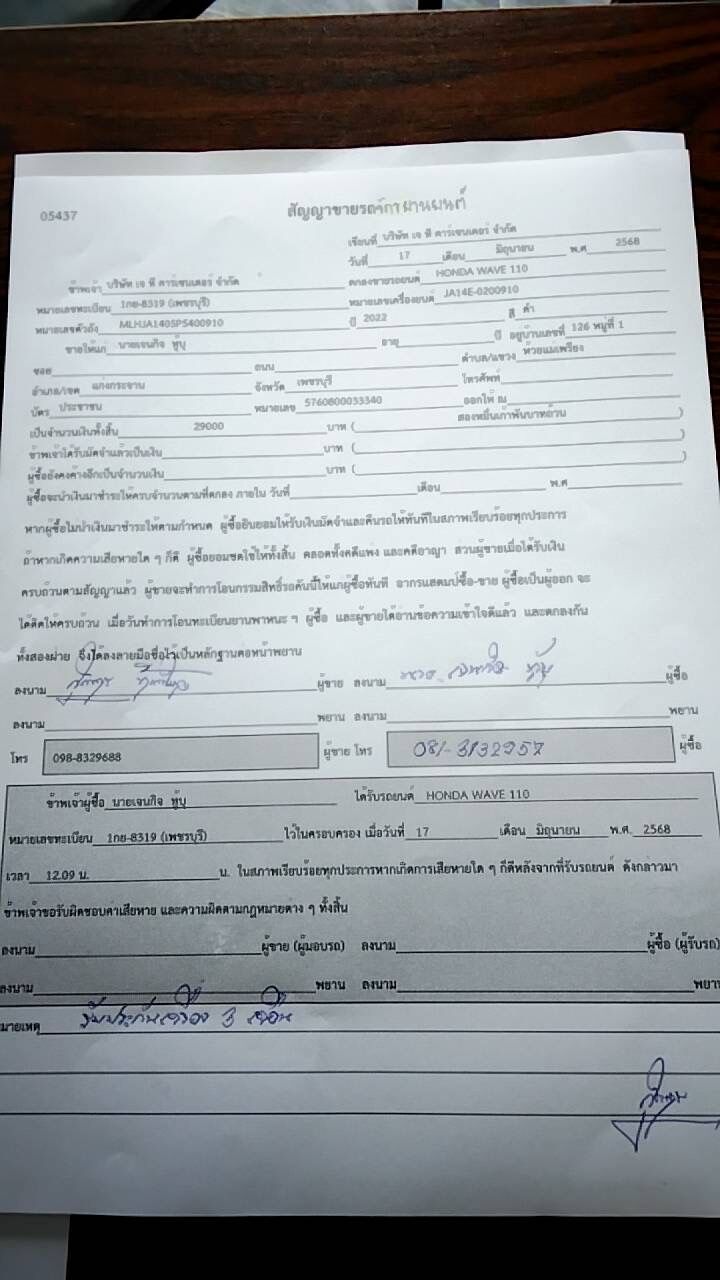 05437
สัญญาขายรถจักรยานยนต์
เขียนที่ บริษัท เจ พี คาร์เซนเตอร์ จำกัด
วันที่ 17 เดือน มิถุนายน พ.ศ 2568
ข้าพเจ้า บริษัท เจ พี คาร์เซนเตอร์ จำกัด ตกลงขายรถยนต์ HONDA WAVE 110
หมายเลขทะเบียน 1กย-8319 (เพชรบุรี) หมายเลขเครื่องยนต์ JA14E-0200910
หมายเลขตัวถัง MLHJA1405P5400910 ปี 2022 สี ดำ
ขายให้แก่ นายเจนกิจ ทู้บุ อายุ ปี อยู่บ้านเลขที่ 126 หมู่ที่ 1
ซอย ถนน ตำบล/แขวง ห้วยแม่เพรียง
อำเภอ/เขต แก่งกระจาน จังหวัด เพชรบุรี โทรศัพท์
บัตร ประชาชน หมายเลข 5760800033340 ออกให้ ณ
เป็นจำนวนเงินทั้งสิ้น 29000 บาท ( สองหมื่นเก้าพันบาทถ้วน )
ข้าพเจ้าได้รับมัดจำแล้วเป็นเงิน บาท ( )
ผู้ซื้อยังคงค้างอีกเป็นจำนวนเงิน บาท ( )
ผู้ซื้อจะนำเงินมาชำระให้ครบจำนวนตามที่ตกลง ภายใน วันที่ เดือน พ.ศ
หากผู้ซื้อไม่นำเงินมาชำระให้ตามกำหนด ผู้ซื้อยินยอมให้ริบเงินมัดจำและคืนรถให้ทันทีในสภาพเรียบร้อยทุกประการ
ถ้าหากเกิดความเสียหายใด ๆ ก็ดี ผู้ซื้อยอมชดใช้ให้ทั้งสิ้น ตลอดทั้งคดีแพ่ง และคดีอาญา ส่วนผู้ขายเมื่อได้รับเงิน
ครบถ้วนตามสัญญาแล้ว ผู้ขายจะทำการโอนกรรมสิทธิ์รถคันนี้ให้แก่ผู้ซื้อทันที อากรแสตมป์ซื้อ-ขาย ผู้ซื้อเป็นผู้ออก จะ
ได้ติดให้ครบถ้วน เมื่อวันทำการโอนทะเบียนยานพาหนะ ฯ ผู้ซื้อ และผู้ขายได้อ่านข้อความเข้าใจดีแล้ว และตกลงกัน
ทั้งสองฝ่าย จึงได้ลงลายมือชื่อไว้เป็นหลักฐานต่อหน้าพยาน
ลงนาม ผู้ขาย ลงนาม นาย เจนกิจ ทู้บุ ผู้ซื้อ
ลงนาม พยาน ลงนาม พยาน
โทร 098-8329688 ผู้ขาย โทร 081-3132957 ผู้ซื้อ
ข้าพเจ้าผู้ซื้อ นายเจนกิจ ทู้บุ ได้รับรถยนต์ HONDA WAVE 110
หมายเลขทะเบียน 1กย-8319 (เพชรบุรี) ไว้ในครอบครอง เมื่อวันที่ 17 เดือน มิถุนายน พ.ศ. 2568
เวลา 12.09 น. น. ในสภาพเรียบร้อยทุกประการหากเกิดการเสียหายใด ๆ ก็ดีหลังจากที่รับรถยนต์ ดังกล่าวมา
ข้าพเจ้าขอรับผิดชอบค่าเสียหาย และความผิดตามกฎหมายต่าง ๆ ทั้งสิ้น
ลงนาม ผู้ขาย (ผู้มอบรถ) ลงนาม ผู้ซื้อ (ผู้รับรถ)
ลงนาม พยาน ลงนาม พยาน
มายเหตุ รับประกันเครื่อง 3 เดือน